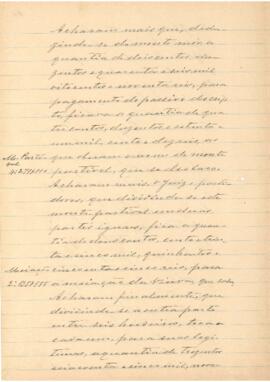 Acharam mais que, dedu-
zindo-se do monte mór a
quantia de
centos e quarenta e seis mil
oitocentos e noventa reis, para
pagamento do passivo descrip-
to, ficava a quantia de qua-
tro contos, duzentos e setenta e
um mil, cento e dez reis, ao
que deram o nome de monte
partivel, que se destaca.
Acharam mais o Juiz e parti-
dores, que dividindo-se este
monte partivel em duas
partes iguaes, fica a quan-
tia de dous contos, cento e trin-
ta e cinco mil, quinhentos e
cincoenta e cinco reis, para
a meiação da Viuva que
Acharam finalmente, que
dividindo-se a outra parte
entre seis herdeiros, toca a
cada um, para suas legi-
timas, a quantia de trezentos
e cincoenta e cinco mil, nove